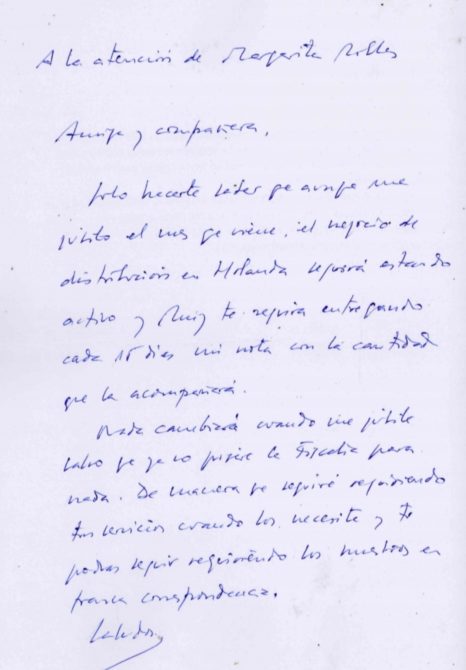 A la atención de Margarita Robles
Amiga y compañera,
Solo hacerte saber que aunque me
jubilo el mes que viene, el negocio de
distribución en Holanda seguirá estando
activo y Ruiz te seguirá entregando
cada 15 días mi nota con la cantidad
que la acompañará.
Nada cambiará cuando me jubile
salvo que ya no pisaré la Fiscalía para
nada. De manera que seguiré requiriendo
tus servicios cuando los necesite y te
podrás seguir requiriendo los nuestros en
franca correspondencia.
Saludos,